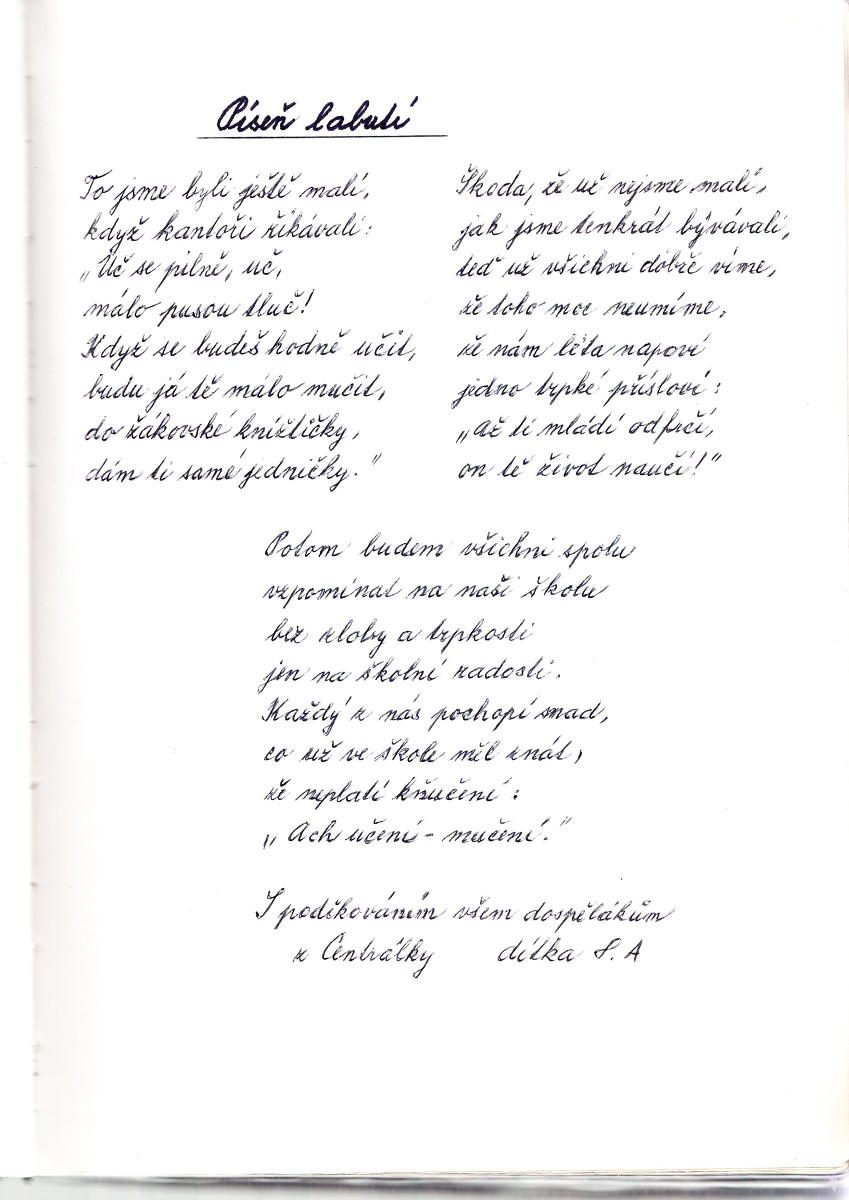 Píseň labutí
To jsme byli ještě malí,
když kantoři říkávali:
„Uč se pilně, uč,
málo pusou tluč!
Když se budeš hodně učit,
budu já tě málo mučit,
do žákovské knížtičky,
dám ti samé jedničky."
Škoda, že už nejsme malí,
jak jsme tenkrát bývávali,
teď už všichni dobře víme,
že toho moc neumíme,
že nám léta napoví
jedno trpké přísloví:
„Až ti mládí odfrčí,
on tě život naučí!"
Potom budem všichni spolu
vzpomínat na naši školu
bez zloby a trpkosti
jen na školní radosti.
Každý z nás pochopí snad,
co už ve škole měl znát,
že neplatí kňučení:
„Ach učení - mučení."
S poděkováním všem dospělákům
z Centrálky dítka 8. A